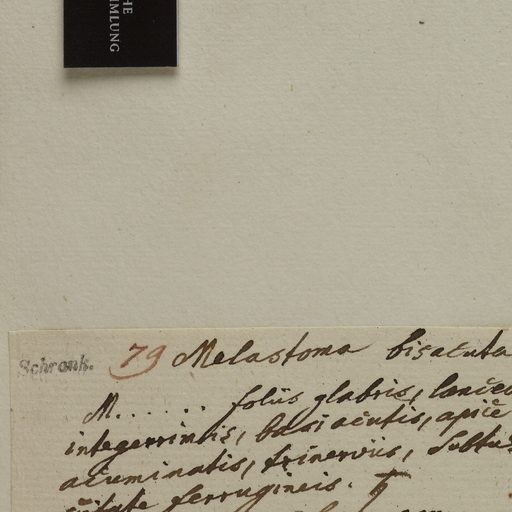 HE
MMLUNG
Schrank. 79 Melastoma bisacuta
M. . . . . . foliis glabris, lanceo
integerrimis, basi acutis, apice
acuminatis, trinerviis, subtus
ferrugineis. ♄